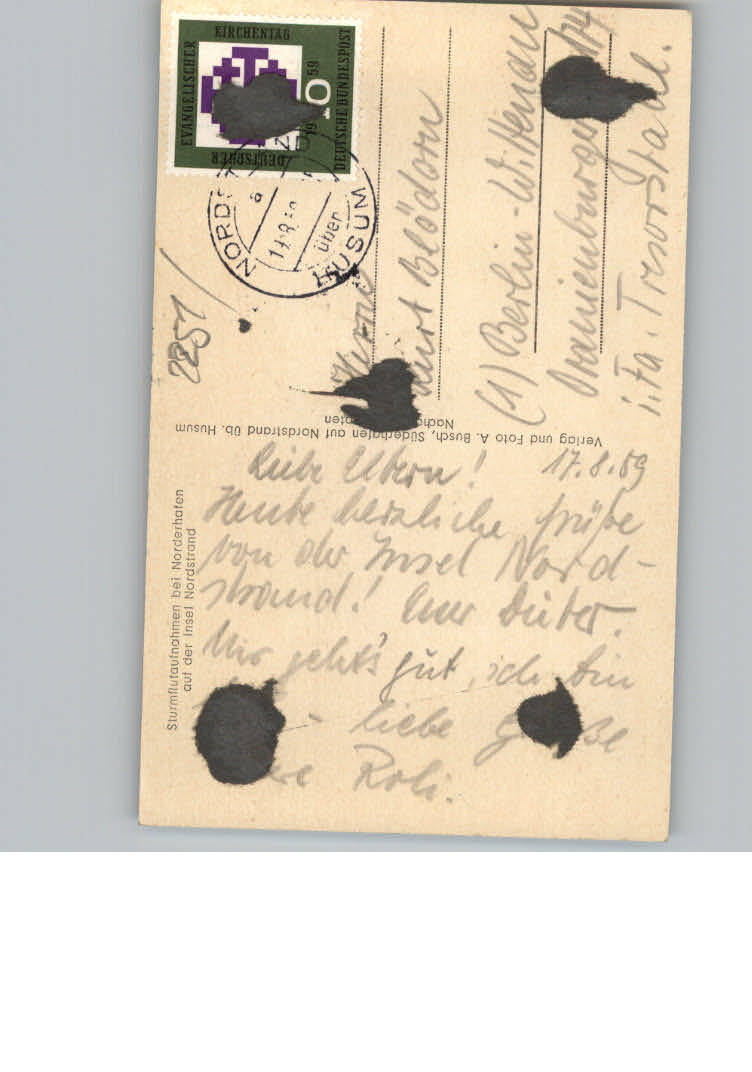 EVANGELISCHER
KIRCHENTAG
DEUTSCHE BUNDESPOST
DEUTSCHER
1959
10
a
17.8.59
über
HUSUM
2251
Kurt Blödorn
(1) Berlin-Wittenau
Oranienburger
i. Fa. Tresorstahl.
Verlag und Foto A. Busch, Süderhafen auf Nordstrand Üb. Husum
Sturmflutaufnahmen bei Norderhafen
auf der Insel Nordstrand
17.8.59
Liebe Eltern!
Heute herzliche Grüße
von der Insel Nord-
strand! Euer Dieter.
Mir geht's gut, ich bin
liebe
Roli.